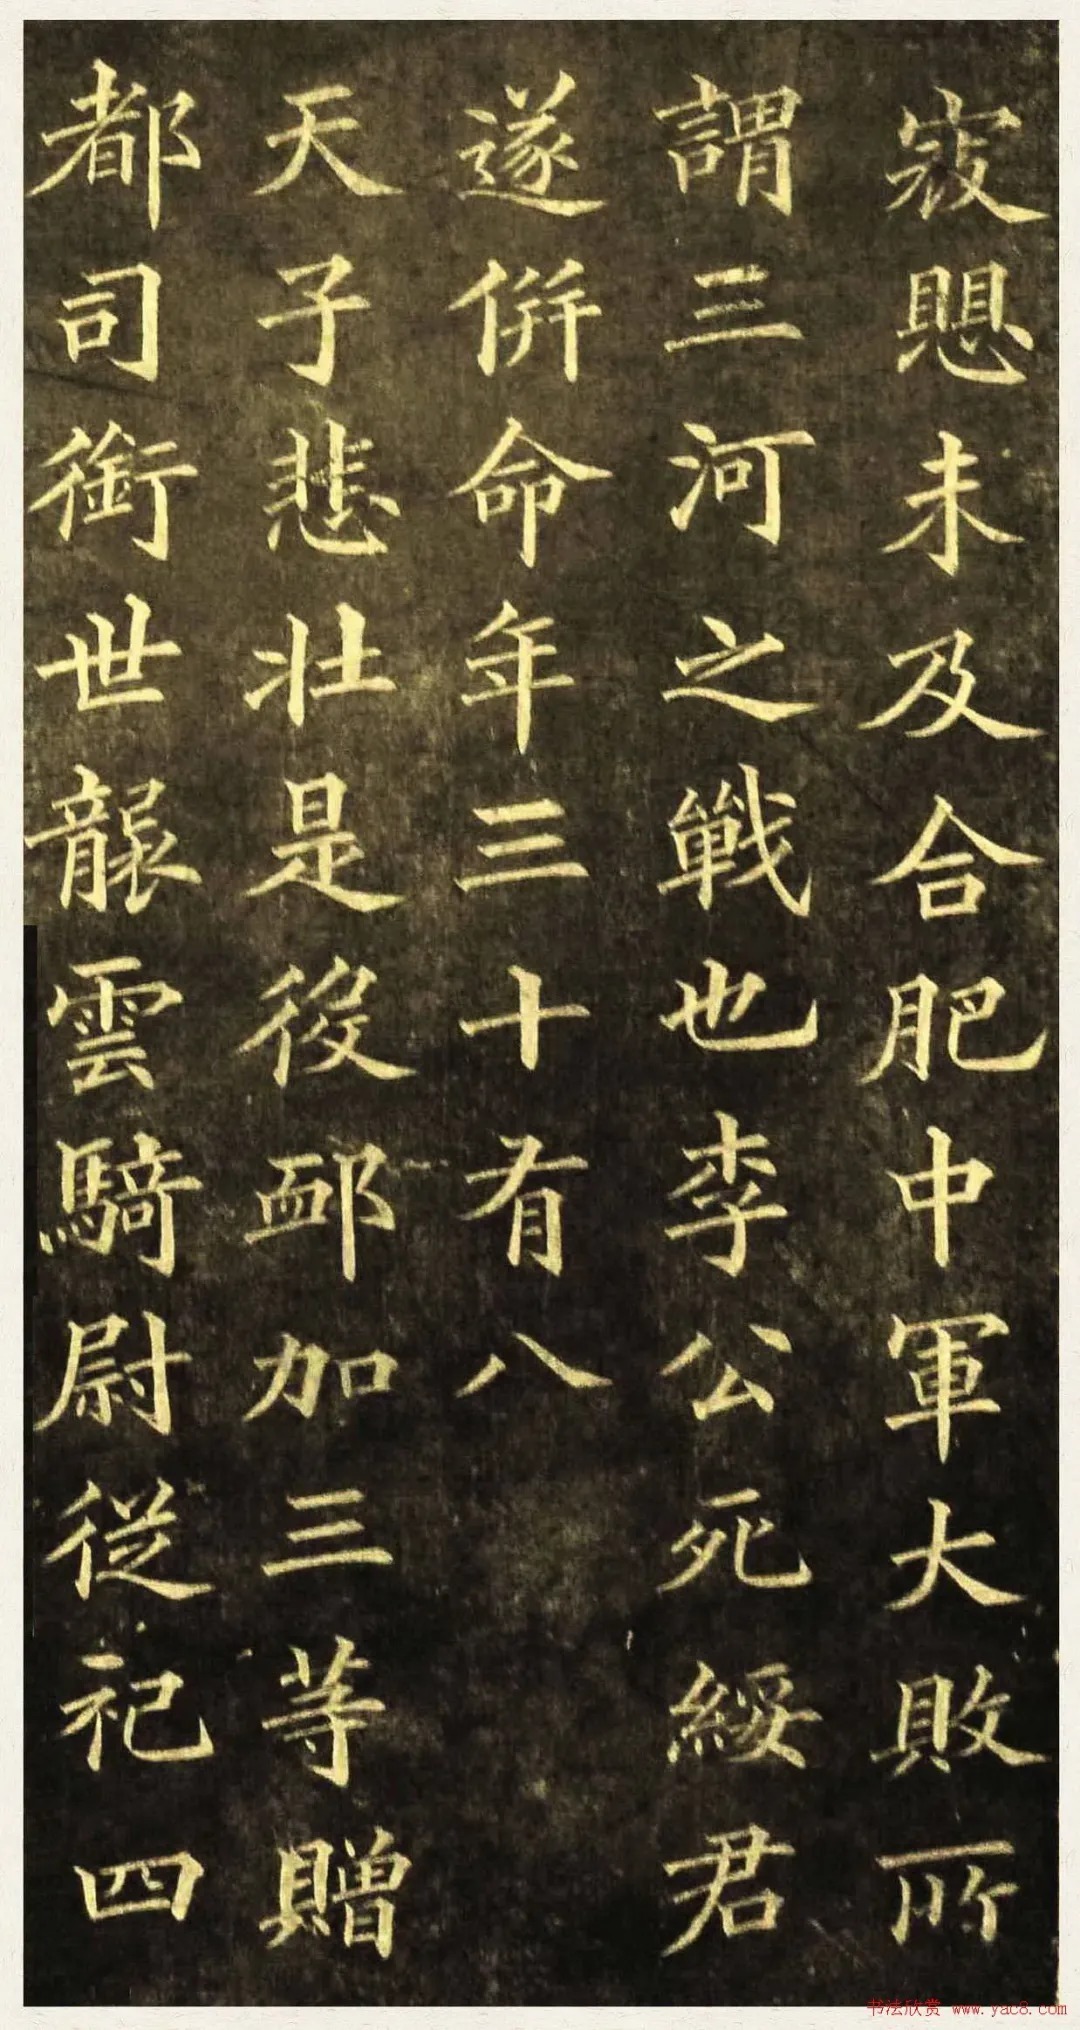 寇䀠未及合肥中軍大敗所
謂三河之戰也李公死綏君
遂併命年三十有八
天子悲壯是役䘏加三等贈
都司銜世襲雲騎尉從祀四
书法欣赏 www.yac8.com